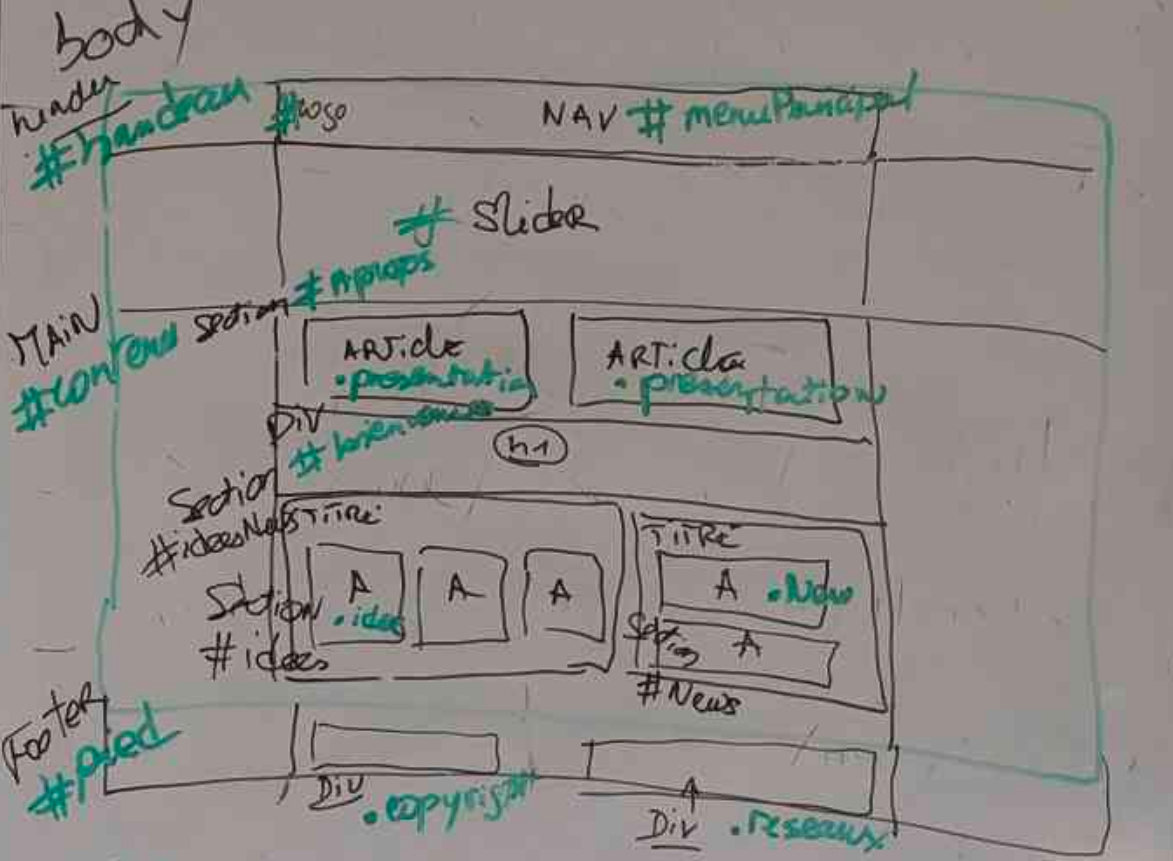 body
header
#bandeau
#logo
NAV #menuPrincipal
# Slider
#Apropos
MAiN
#contenu
section
ARTiclE
.presentation
ARTiclE
.presentation
Div
#bienvenue
h1
Section
#ideesNews
TiTRE
TiTRE
A
.idee
A
A
A
.New
Section
#idees
Section
A
#News
FooteR
#pied
Div
.copyright
Div
.reseaux